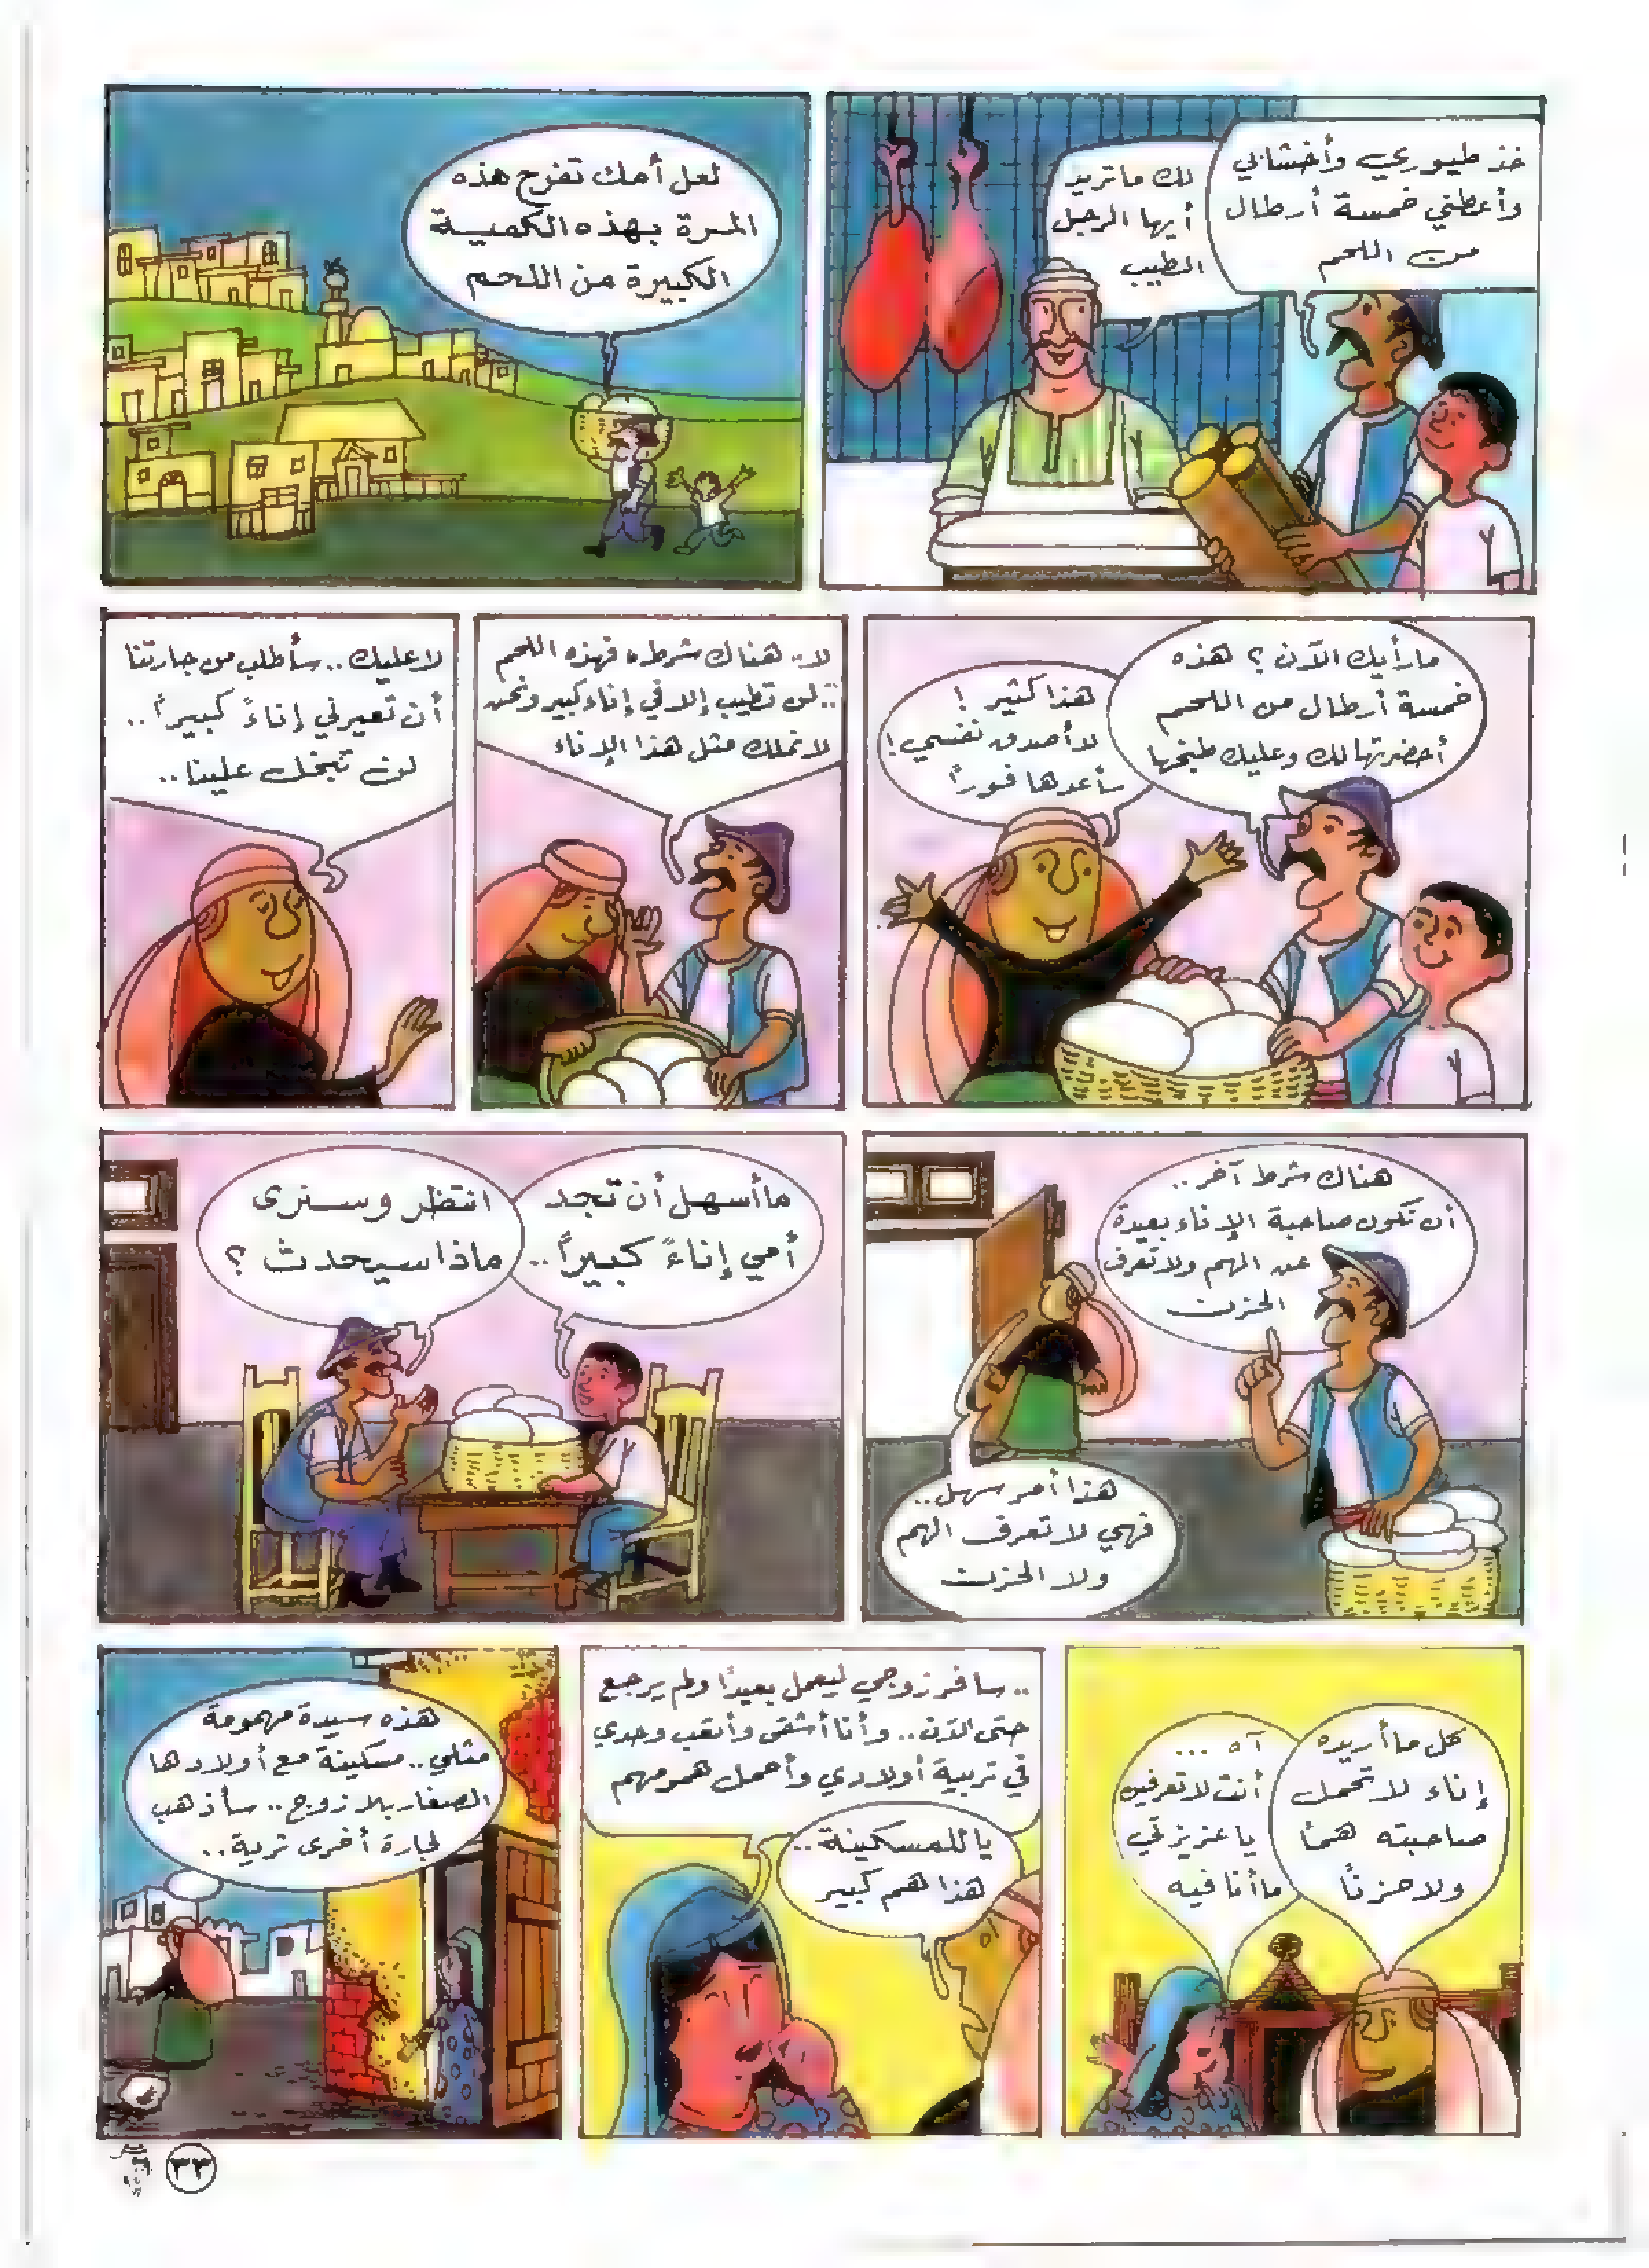 خذ طيوري وأخشابي
وأعطني خمسة أرطال
من اللحم
لك ماتريد
أيها الرجل
الطيب
لعل أمك تفرح هذه
المرة بهذه الكميـة
الكبيرة من اللحم
مارأيك الآن ؟ هذه
خمسة أرطال من اللحم
أحضرتها لك وعليك طبخها
هذا كثير !
لاأصدق نفسي !
سأعدها فوراً
لا.. هناك شرط، فهذه اللحم
.. لن تطيب إلا في إناء كبير ونحن
لانملك مثل هذا الإناء
لا عليك .. سأطلب من جارتنا
أن تعيرني إناءً كبيراً ..
لن تبخل علينا ..
هناك شرط آخر ..
أن تكون صاحبة الإناء بعيدة
عن الهم ولاتعرف
الحزن
هذا أمر سهل ..
فهي لا تعرف الهم
ولا الحزن
ماأسهل أن تجد
أمي إناءً كبيراً ..
انتظر وسـنرى
ماذا سيحدث ؟
كل ماأريده
إناء لا تحمل
صاحبته هماً
ولا حزناً
آه ...
أنت لاتعرفين
ياعزيزتي
ماأنا فيه
.. سافر زوجي ليعمل بعيداً ولم يرجع
حتى الآن .. وأنا أشقى وأتعب وحدي
في تربية أولادي وأحمل همومهم
ياللمسكينة ..
هذا هم كبير
هذه سيدة مهمومة
مثلي .. مسكينة مع أولادها
الصغار بلا زوج .. سأذهب
لجارة أخرى ثرية ..
٣٣